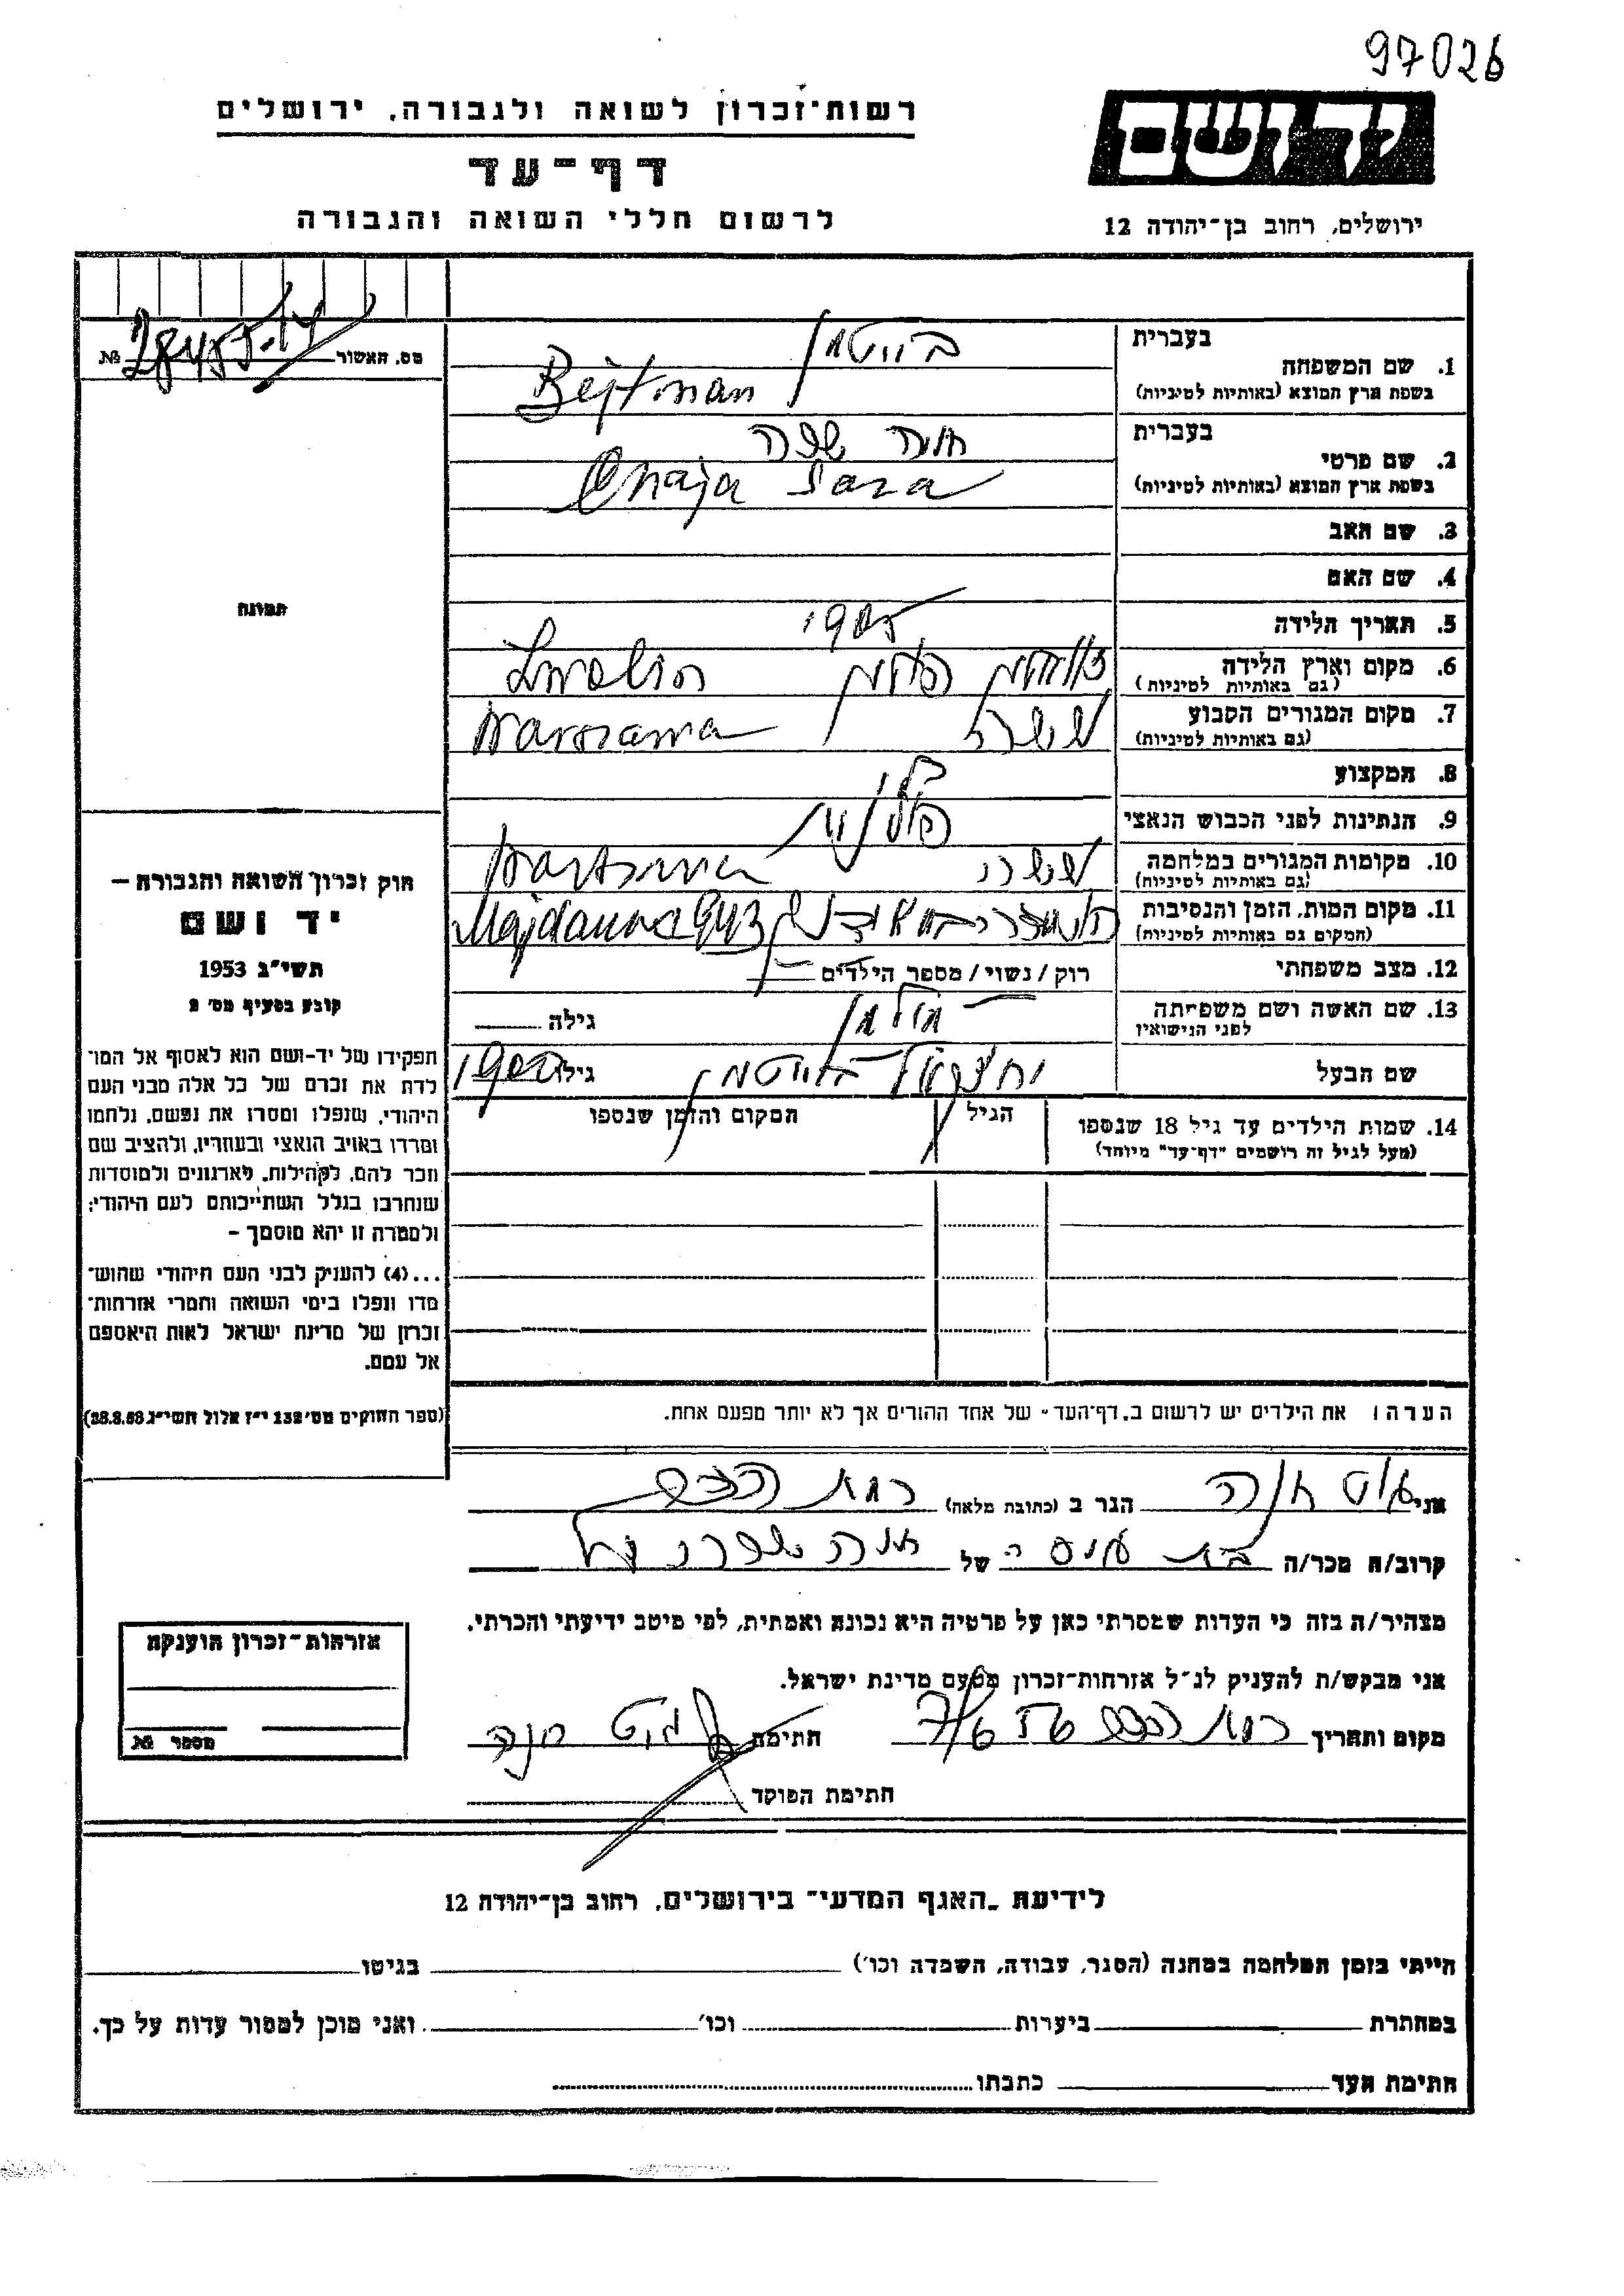 97026
רשות־זכרון לשואה ולגבורה, ירושלים
יד ושם
דף־עד
לרשום חללי השואה והגבורה
ירושלים, רחוב בן־יהודה 12
מס. האשור №
בעברית
1. שם המשפחה
בשפת ארץ המוצא (באותיות לטיניות) Bejtman
בעברית חיה שרה
2. שם פרטי
בשפת ארץ המוצא (באותיות לטיניות) Chaja Sara
3. שם האב
4. שם האם
תמונה
5. תאריך הלידה 1905
6. מקום וארץ הלידה
(גם באותיות לטיניות) פולין
7. מקום המגורים הקבוע
(גם באותיות לטיניות) ורשה Warszawa
8. המקצוע
9. הנתינות לפני הכבוש הנאצי
10. מקומות המגורים במלחמה
(גם באותיות לטיניות) ורשה Warszawa
11. מקום המות, הזמן והנסיבות
(המקום גם באותיות לטיניות)
12. מצב משפחתי רוק/נשוי/מספר הילדים
13. שם האשה ושם משפחתה
לפני הנישואין גילה
שם הבעל גילו 1900
14. שמות הילדים עד גיל 18 שנספו
(מעל לגיל זה רושמים "דף־עד" מיוחד)
הגיל
המקום והזמן שנספו
חוק זכרון השואה והגבורה —
יד ושם
תשי"ג 1953
קובע בסעיף מס׳ 2
תפקידו של יד־ושם הוא לאסוף אל המו־
לדת את זכרם של כל אלה מבני העם
היהודי, שנפלו ומסרו את נפשם, נלחמו
ומרדו באויב הנאצי ובעוזריו, ולהציב שם
וזכר להם, לקהילות, לארגונים ולמוסדות
שנחרבו בגלל השתייכותם לעם היהודי;
ולמטרה זו יהא מוסמך –
...(4) להעניק לבני העם היהודי שהוש־
מדו ונפלו בימי השואה והמרי אזרחות־
זכרון של מדינת ישראל לאות היאספם
אל עמם.
(ספר החוקים מס׳ 132 י״ז אלול תשי״ג 28.8.53)
הערה: את הילדים יש לרשום ב„דף־העד״ של אחד ההורים אך לא יותר מפעם אחת.
אני חנה הגר ב (כתובת מלאה)
קרוב/ה מכר/ה בת של
מצהיר/ה בזה כי העדות שמסרתי כאן על פרטיה היא נכונה ואמתית, לפי מיטב ידיעתי והכרתי.
אני מבקש/ת להעניק לנ״ל אזרחות־זכרון מטעם מדינת ישראל.
מקום ותאריך חתימה חנה
חתימת הפוקד
אזרחות־זכרון הוענקה
מספר №
לידיעת „האגף המדעי״ בירושלים, רחוב בן־יהודה 12
הייתי בזמן המלחמה במחנה (הסגר, עבודה, השמדה וכו׳) בגיטו
במחתרת ביערות וכו׳ ואני מוכן למסור עדות על כך.
חתימת העד כתבתו